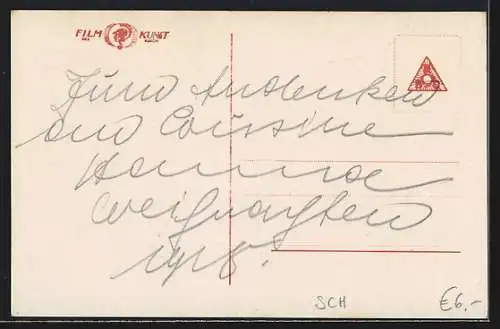 FILM KUNST
Zum Andenken
an Coussine
Hanna
Weihnachten
SCH €6,-